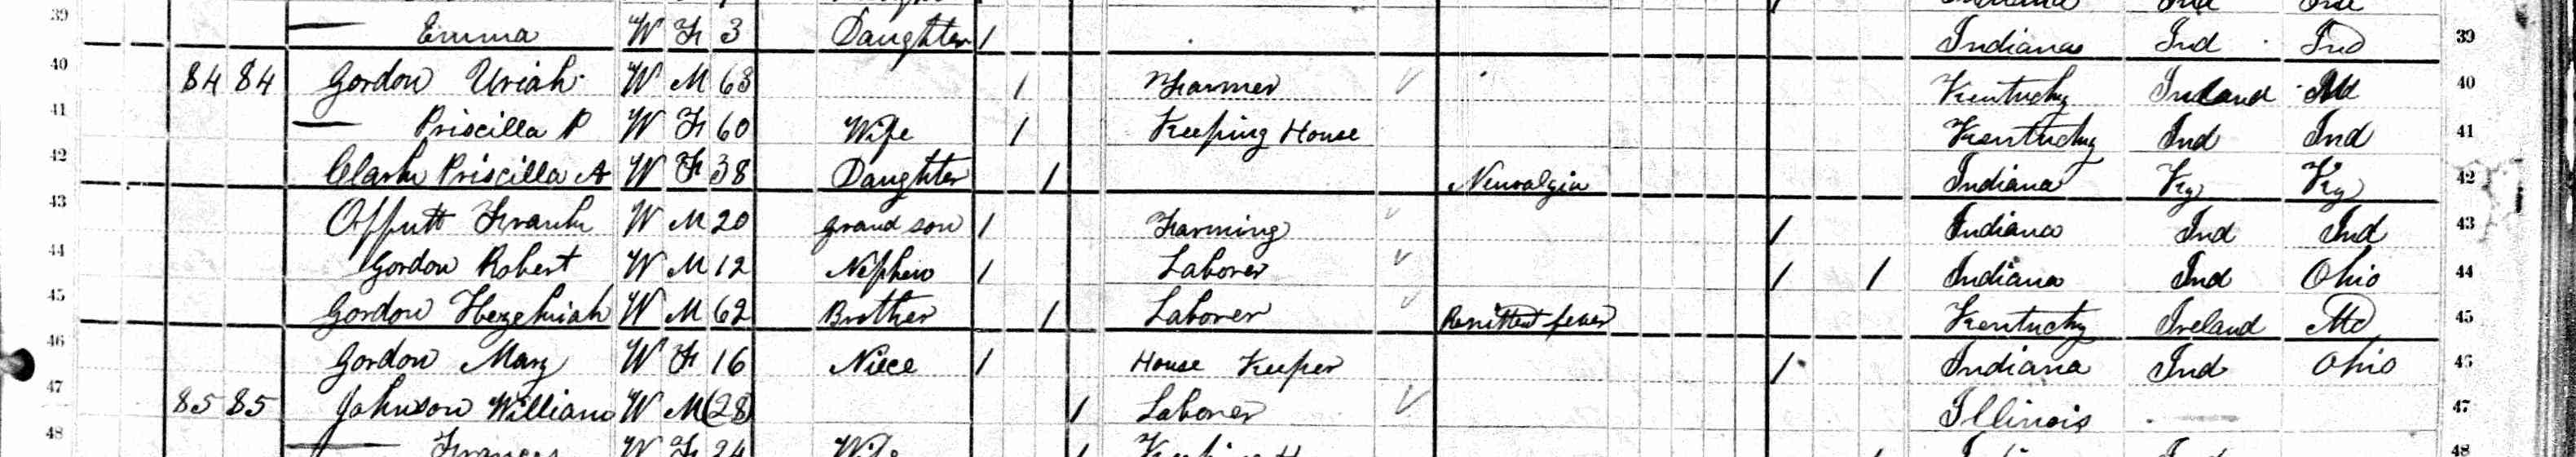 39 Emma W F 3 Daughter 1 Indiana Ind Ind 39
40 84 84 Gordon Uriah W M 63 1 Farmer Kentucky Ireland Md 40
41 — Priscilla P W F 60 Wife 1 Keeping House Kentucky Ind Ind 41
42 Clark Priscilla A W F 38 Daughter 1 Neuralgia Indiana Ky Ky 42
43 Offutt Frank W M 20 Grand son 1 Farming 1 Indiana Ind Ind 43
44 Gordon Robert W M 12 Nephew 1 Laborer 1 1 Indiana Ind Ohio 44
45 Gordon Hezekiah W M 62 Brother 1 Laborer Remittent fever Kentucky Ireland Md 45
46 Gordon Mary W F 16 Niece 1 House Keeper 1 Indiana Ind Ohio 46
47 85 85 Johnson William W M 28 1 Laborer Illinois 47
48 — Frances W F 24 Wife 1 48